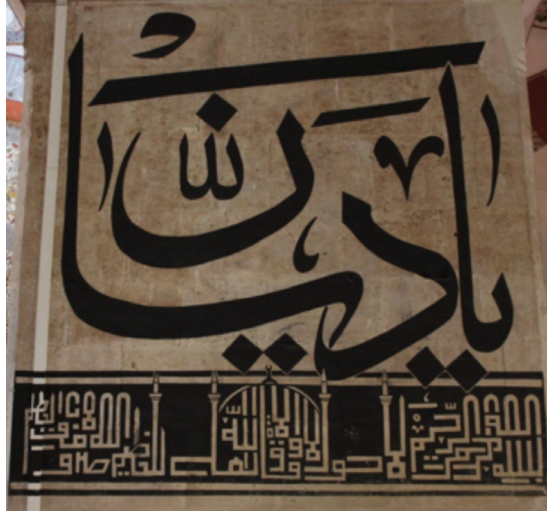 يا ديان
بسم الله الرحمن الرحيم لا حول ولا قوة الا بالله العلي العظيم